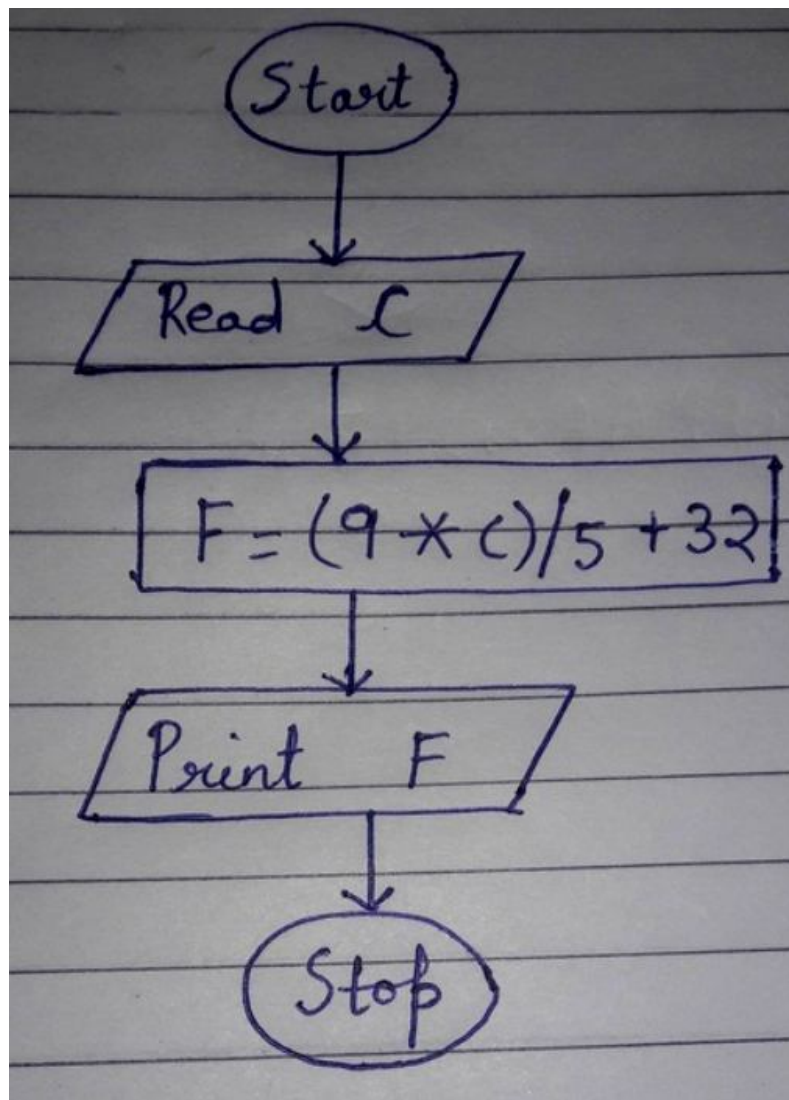 Start
Read C
F = (9 * C)/5 + 32
Print F
Stop